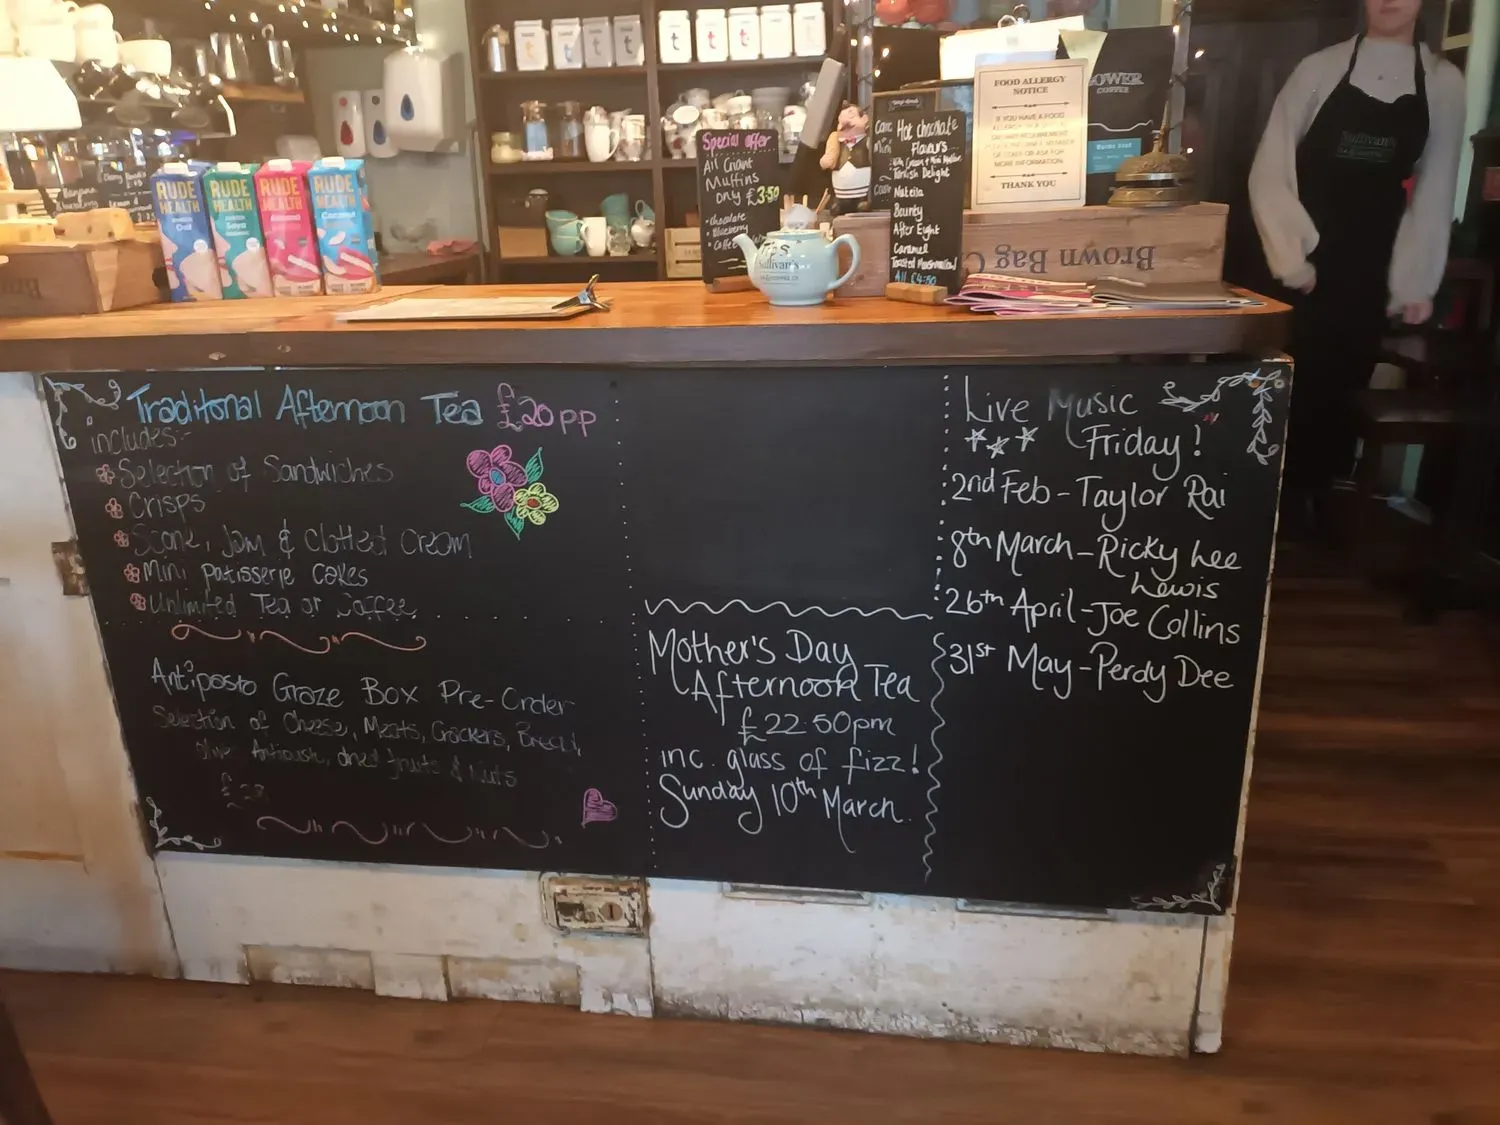 RUDE HEALTH
Oat
RUDE HEALTH
Soya
RUDE HEALTH
Almond
RUDE HEALTH
Coconut
Special offer
All Giant
Muffins
only £3.50
• chocolate
• Blueberry
Hot chocolate
Flavours
Turkish Delight
Nutella
Bounty
After Eight
Caramel
Toasted Marshmallow
All £4.50
FOOD ALLERGY
NOTICE
IF YOU HAVE A FOOD
MORE INFORMATION
THANK YOU
OWER
COFFEE
Brown Bag C
Sullivan's
Sullivan's
Traditional Afternoon Tea £20pp
includes:-
Selection of Sandwiches
Crisps
Scone, Jam & Clotted Cream
Mini patisserie cakes
Unlimited Tea or Coffee
Antipasto Graze Box Pre-Order
Selection of Cheese, Meats, Crackers, Bread,
dried fruits & Nuts
Mother's Day
Afternoon Tea
£22.50pm
inc. glass of fizz!
Sunday 10th March.
Live Music
Friday!
2nd Feb - Taylor Rai
8th March - Ricky Lee
Lewis
26th April - Joe Collins
31st May - Perdy Dee